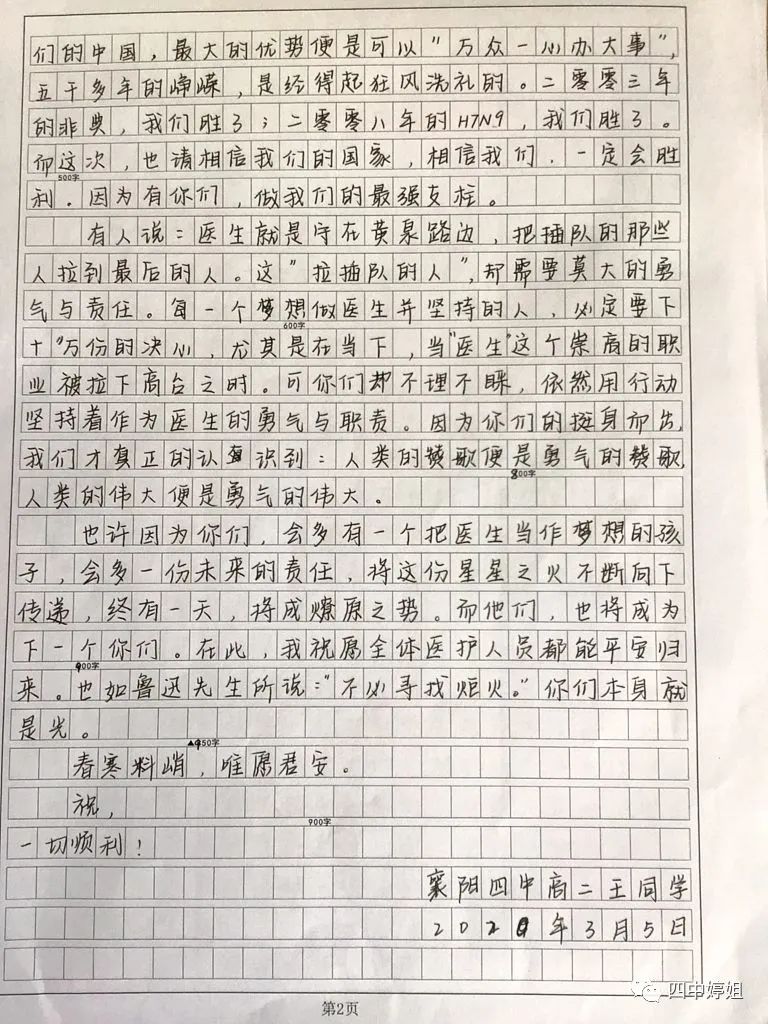 们的中国，最大的优势便是可以"万众一心办大事"，
五千多年的峥嵘，是经得起狂风洗礼的。二零零三年
的非典，我们胜了；二零零八年的H7N9，我们胜了。
而这次，也请相信我们的国家，相信我们，一定会胜
500字
利．因为有你们，做我们的最强支柱。
有人说：医生就是守在黄泉路边，把插队的那些
人拉到最后的人。这"拉插队的人"，却需要莫大的勇
气与责任。每一个梦想做医生并坚持的人，必定要下
600字
十万份的决心，尤其是在当下，当"医生"这个崇高的职
业被拉下高台之时。可你们却不理不睬，依然用行动
坚持着作为医生的勇气与职责。因为你们的挺身而出，
我们才真正的认识到：人类的赞歌便是勇气的赞歌，
800字
人类的伟大便是勇气的伟大。
也许因为你们，会多有一个把医生当作梦想的孩
子，会多一份未来的责任，将这份星星之火不断向下
传递，终有一天，将成燎原之势。而他们，也将成为
下一个你们。在此，我祝愿全体医护人员都能平安归
900字
来。也如鲁迅先生所说："不必寻找炬火。"你们本身就
是光。
▲950字
春寒料峭，唯愿君安。
祝，
900字
一切顺利！
襄阳四中高二王同学
2020年3月5日
第2页
四中婷姐